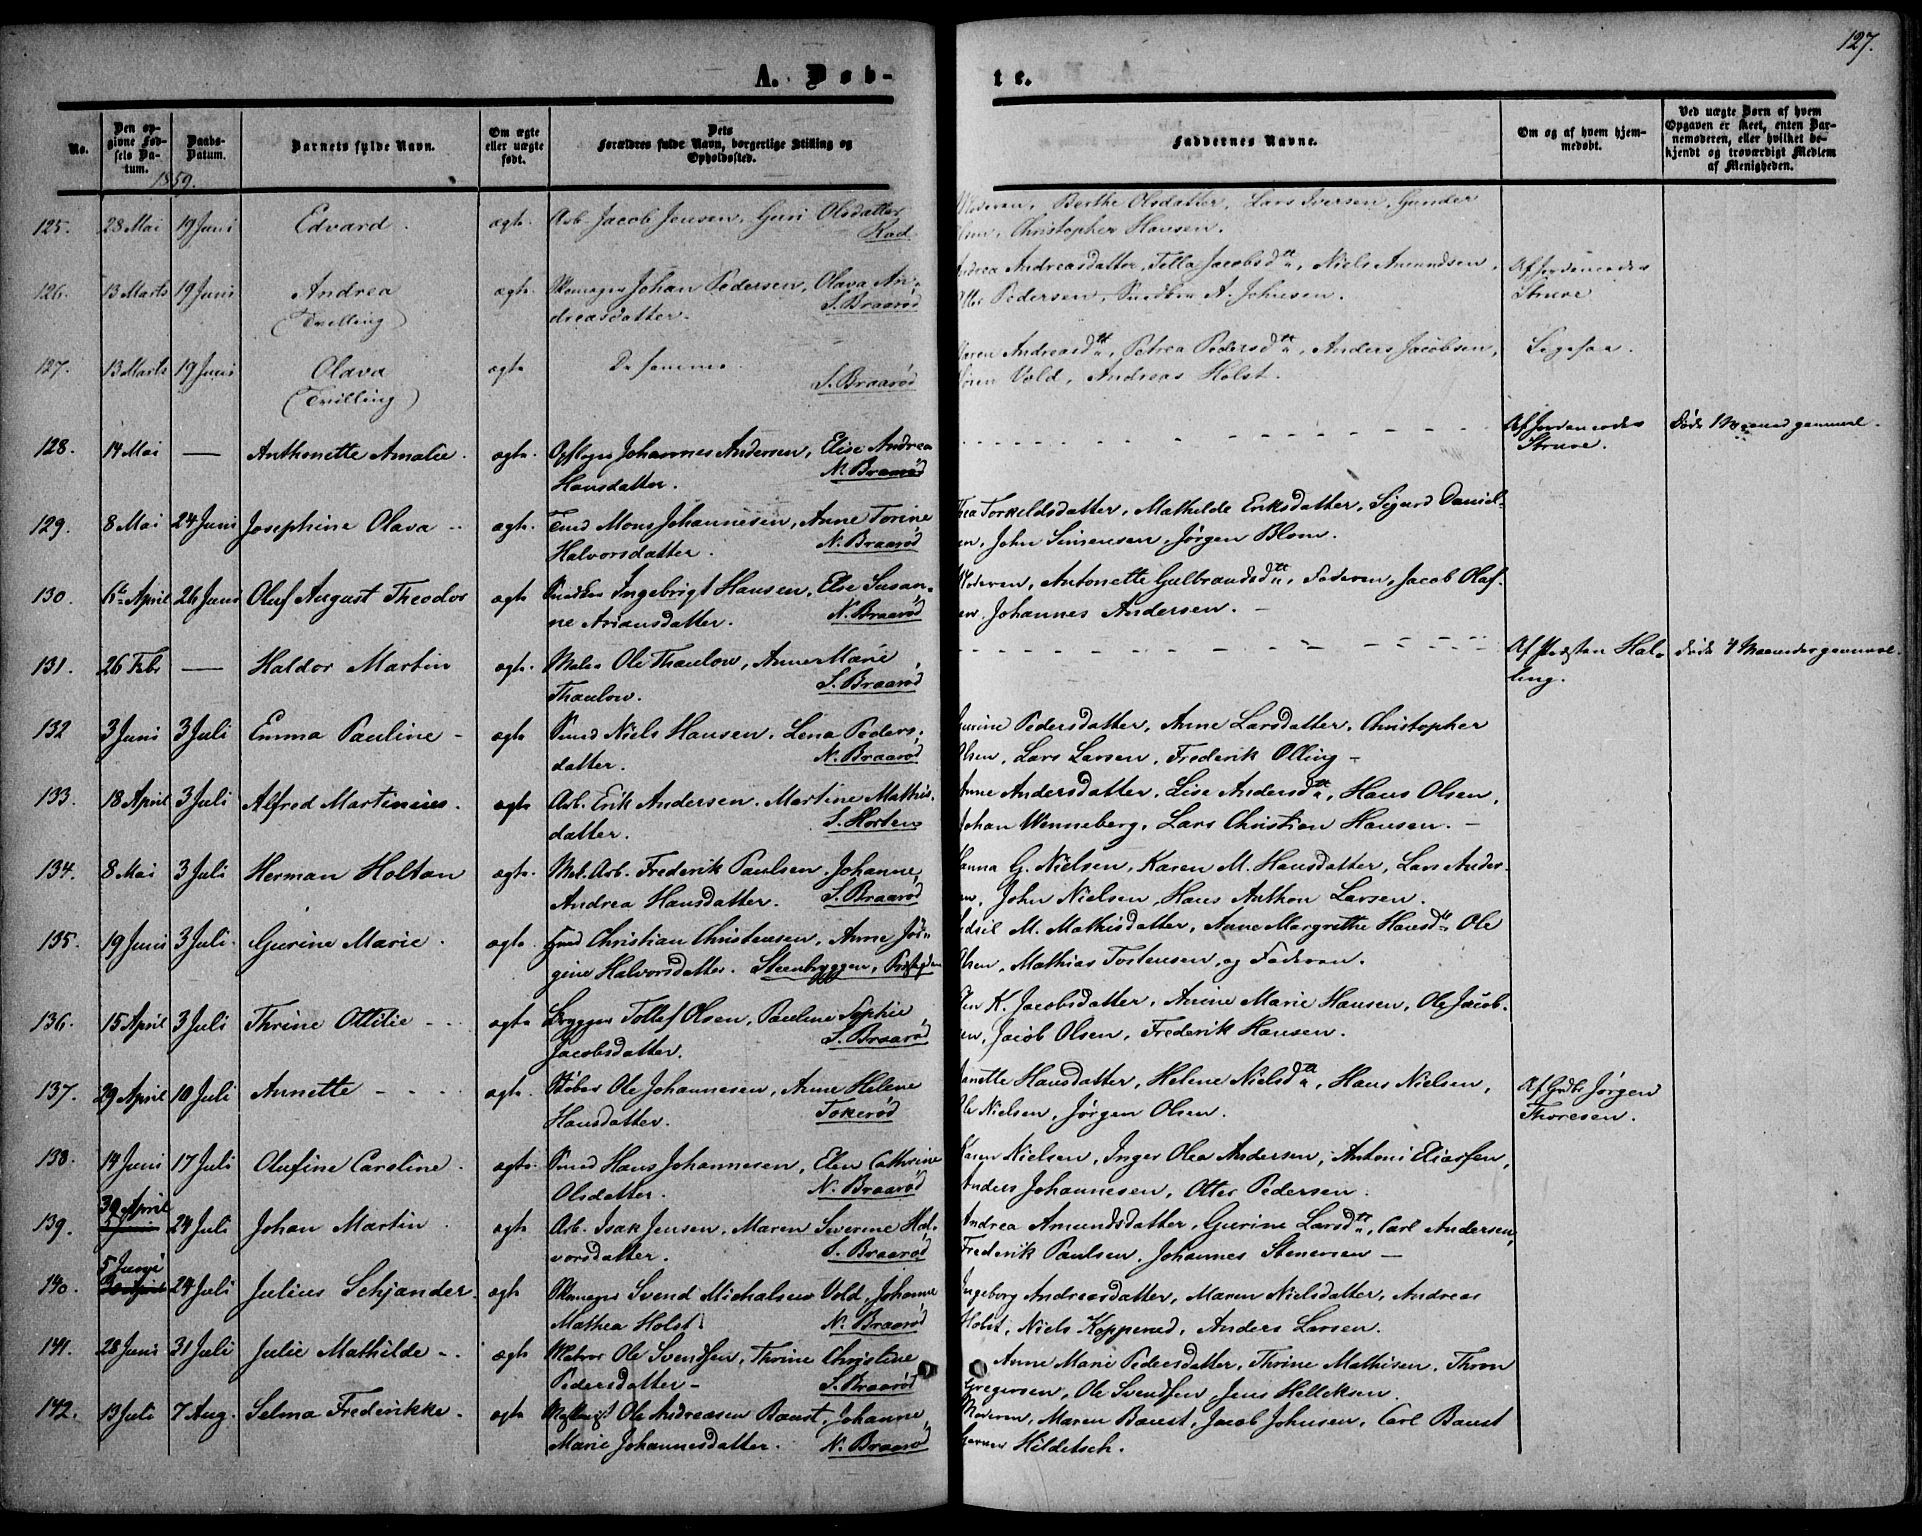 127.
A. Døb-
te.
No.
Den op-
givne Fød-
sels Da-
tum.
Daabs-
Datum.
Barnets fulde Navn.
Om ægte
eller uægte
født.
Dets
Forældres fulde Navn, borgerlige Stilling og
Opholdssted.
Faddernes Navne.
Om og af hvem hjem-
medøbt.
Ved uægte Børn af hvem
Opgaven er skeet, enten Bar-
nemoderen, eller hvilket be-
kjendt og troværdigt Medlem
af Menigheden.
1859.
125. 28 Mai 19 Juni Edvard. ægte. Arb. Jacob Jensen, Guri Olsdatter
Moderen, Berthe Olsdatter, Lars Iversen, Gunder
Olsen, Christopher Hansen.
126. 13 Marts 19 Juni Andrea ægte. Skomager Johan Pedersen, Olava An-
(Tvilling) dreasdatter. S. Braarød
Andrea Andreasdatter, Tella Jacobsdtt, Niels Amundsen, Af Jordemoder
Otter Pedersen, A. Johnsen. Struve
127. 13 Marts 19 Juni Olava ægte De samme.
(Tvilling) S. Braarød
Maren Andreasdtt, Petrea Pedersdtt, Anders Jacobsen, Ligesaa.
Søren Vold, Andreas Holst.
128. 14 Mai — Anthonette Amalie. ægte. Johannes Andersen, Elise Andrea
Hansdatter. N. Braarød
Af Jordemoder Døde 1 Maaned gammel.
Struve.
129. 8 Mai 24 Juni Josephine Olava - ægte. Tmd Mons Johannesen, Anne Torine
Halvorsdatter. N. Braarød
Thea Torkeldsdatter, Mathilde Eriksdatter, Sigurd Daniel-
sen, John Simensen, Jørgen Blom.
130. 6te April 26 Juni Oluf August Theodor ægte Ingebrigt Hansen, Else Susan-
ne Ariansdatter. N. Braarød
Moderen, Antonette Gulbrandsdtt, Faderen, Jacob Olaf-
sen, Johannes Andersen. -
131. 26 Febr — Haldor Martin ægte. Maler Ole Thaulow, Anne Marie
Thaulow. S. Braarød
Af Præsten Hal- Døde 4 Maaneder gammel.
ling.
132 3 Juni 3 Juli Emma Pauline - ægte Smed Niels Hansen, Lena Peders-
datter. N. Braarød
Gurine Pedersdatter, Anne Larsdatter, Christopher
Olsen, Lars Larsen, Frederik Olling -
133. 18 April 3 Juli Alfred Martinius. ægte Arb. Erik Andersen, Martine Mathis-
datter. S. Horten
Anne Andersdatter, Lise Andersdtt, Hans Olsen,
Johan Wenneberg, Lars Christian Hansen. -
134. 8 Mai 3 Juli Herman Holtan ægte. Arb. Frederik Paulsen, Johanne
Andrea Hansdatter. S. Braarød
Hanna G. Nielsen, Karen M. Hansdatter, Lars Ander-
sen, John Nielsen, Hans Anthon Larsen.
135. 19 Juni 3 Juli. Gurine Marie. ægte. Christian Christensen, Anne Jør-
gine Halvorsdatter. Steenbryggen,
M. Mathisdatter, Anne Margrethe Hansdtt Ole
Olsen, Mathias Tostensen, og Faderen.
136. 15 April 3 Juli Thrine Ottilie - ægte Brygger Tollef Olsen, Pauline Sophie
Jacobsdatter. S. Braarød
K. Jacobsdatter, Anine Marie Hansen, Ole Jacob-
sen, Jacob Olsen, Frederik Hansen.
137. 29 April 10 Juli Annette - - ægte. Støber Ole Johannesen, Anne Helene
Hansdatter. Tokerød
Hansdatter, Helene Nielsdtt, Hans Nielsen, Af Jørgen
Ole Nielsen, Jørgen Olsen. Thoresen.
138. 14 Juni 17 Juli Olufine Caroline. ægte. Smed Hans Johannesen, Elen Cathrine
Olsdatter. N. Braarød
Karen Nielsen, Inger Olea Andersen, Antoni Eliassen,
Anders Johannesen, Otter Pedersen.
139. 30 April 24 Juli Johan Martin. ægte. Arb. Isak Jensen, Maren Severine Hal-
vorsdatter. S. Braarød
Andrea Amundsdatter, Gurine Larsdtt, Carl Andersen,
Frederik Paulsen, Johannes Stenersen -
140. 5 Juni 24 Juli Julius Schjander. ægte Skomager Svend Michalsen Vold, Johanne
Mathea Holst. N. Braarød
Ingeborg Andreasdatter, Maren Nielsdatter, Andreas
Holst, Niels Koppered, Anders Larsen.
141. 28 Juni 31 Juli Julie Mathilde - ægte Matros Ole Svendsen, Thrine Christine
Pedersdatter - S. Braarød
Anne Marie Pedersdatter, Thrine Mathisen, Thron
Gregersen, Ole Svendsen, Jens Helleksen.
142. 13 Juli 7 Aug. Selma Frederikke. ægte Ole Andreasen Baust, Johanne
Marie Johannesdatter. N. Braarød
Moderen, Maren Baust, Jacob Johnsen, Carl Baust
Hilditsch.